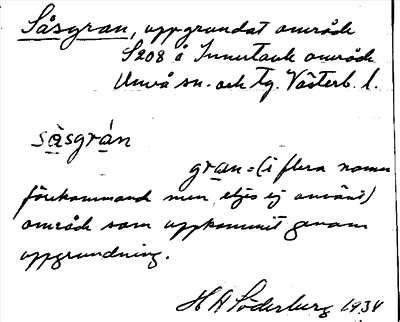 Såsgran, uppgrundat område
S208 å Innertavle område
Umeå sn. och tg. Västerb. l.
sàsgrán
gran = (i flera namn
förekommand men eljes ej använt)
område som uppkommit genom
uppgrundning.
H A Söderberg 1934